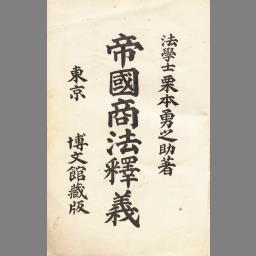 法學士栗本勇之助著
帝國商法釋義
東京 博文館藏版